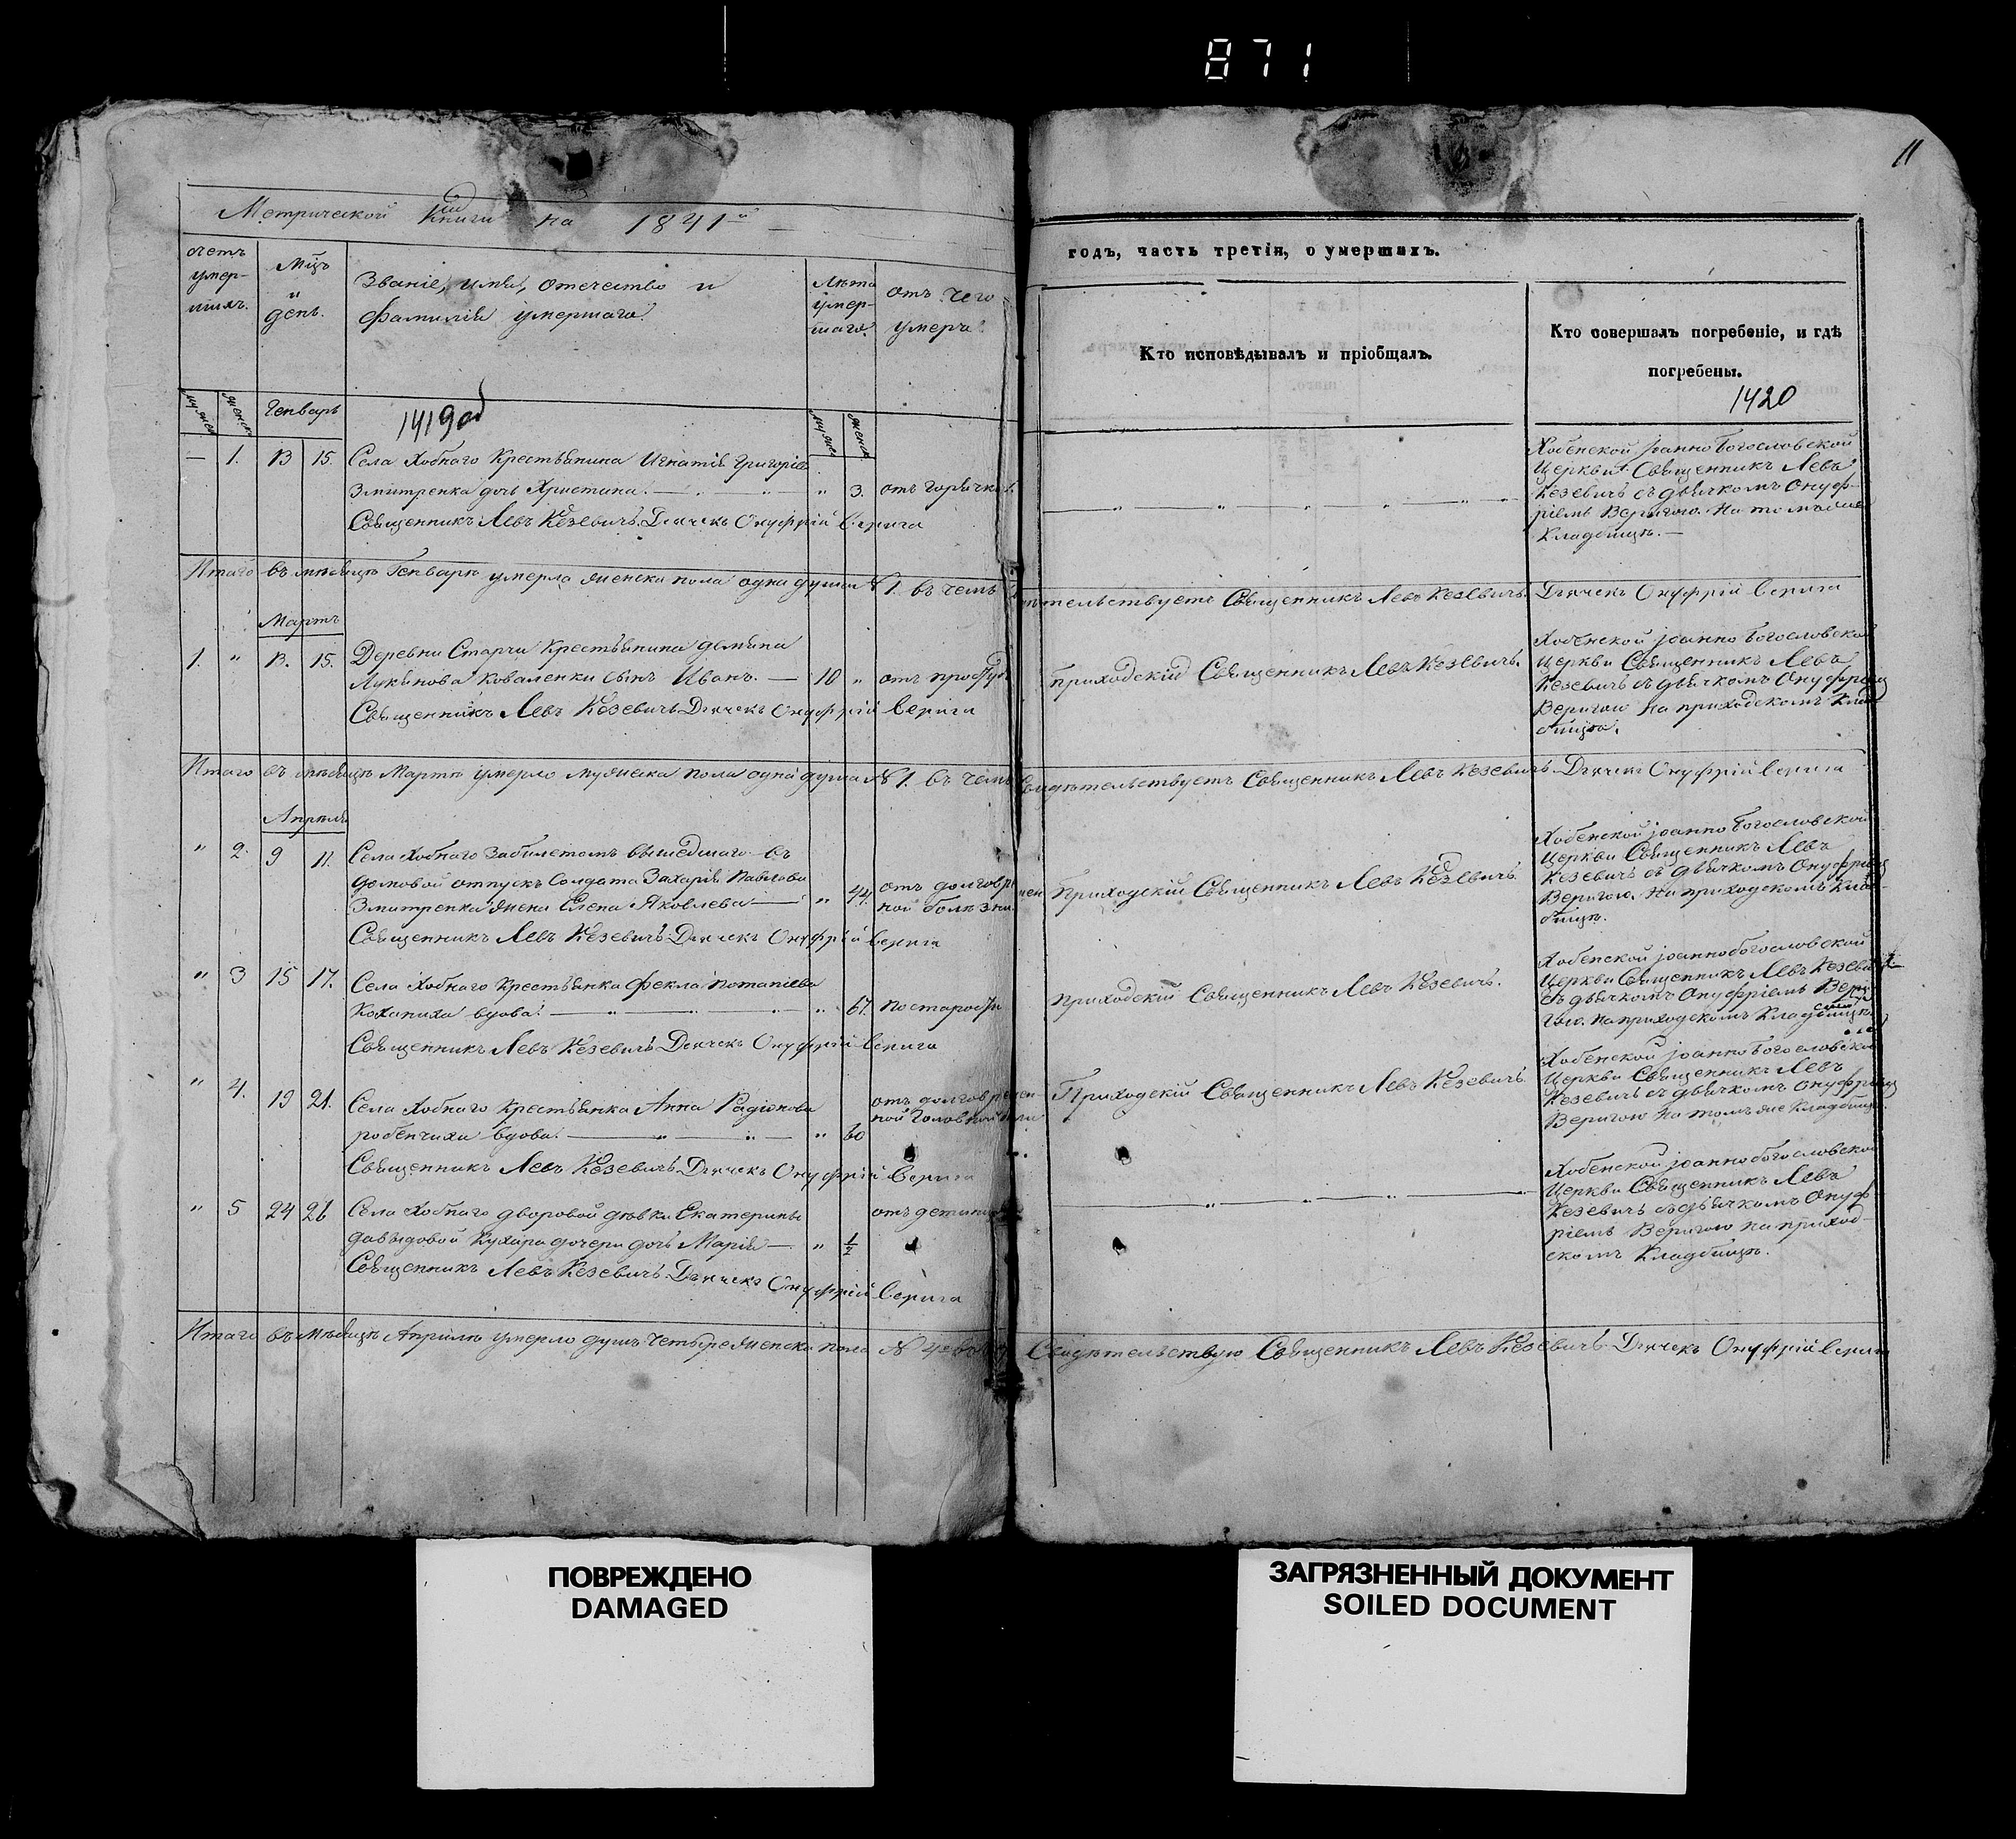 871
11
Метрической Книги на 1841й
счетъ умер-шихъ.
Мцъ и день.
Званіе, имя, отечество и
фамилія умершаго.
Лѣта умер-шаго.
отъ чего умеръ.
годъ, часть третія, о умершихъ.
Кто исповѣдывалъ и пріобщалъ.
Кто совершалъ погребеніе, и гдѣ
погребены.
1420
1419 об
Генварь
— 1. 13 15. Села Хобнаго Крестьянина Игнатія Григоріева
Змитренка дочь Христина. " 3. отъ горячки.
Священникъ Левъ Кезевичъ. Дячекъ Онуфрій Верига
Хобенской Іоанно Богословской
Церкви Священникъ Левъ
Кезевичъ съ дьячкомъ Онуф-
ріемъ Веригою. На томъ же
Кладбищѣ.—
Итаго въ мѣсяцѣ Генварѣ умерла женска пола одна душа № 1. въ чемъ
Священникъ Левъ Кезевичъ. Дячекъ Онуфрій Верига
Мартъ
1. " 13. 15. Деревни Старчи Крестьянина Демяна
Лукянова Коваленки сынъ Иванъ. — 10 " отъ простуды
Священникъ Левъ Кезевичъ Дячекъ Онуфрій Верига
Приходскій Священникъ Левъ Кезевичъ.
Хобенской Іоанно Богословской
Церкви Священникъ Левъ
Кезевичъ съ дьячкомъ Онуфріемъ
Веригою На приходскомъ Клад-
бищѣ.
Итаго въ мѣсяцѣ Мартѣ умерло мужеска пола одна душа № 1. въ чемъ
Свидѣтельствуетъ Священникъ Левъ Кезевичъ. Дячекъ Онуфрій Верига
Апрѣль
" 2. 9 11. Села Хобнаго За билетомъ вышедшаго въ
домовой отпускъ Солдата Захарія Павлова
Змитренка жена Елена Яковлева — " 44. отъ долговремен-
ной болѣзни.
Священникъ Левъ Кезевичъ Дячекъ Онуфрій Верига
Приходскій Священникъ Левъ Кезевичъ.
Хобенской Іоанно Богословской
Церкви Священникъ Левъ
Кезевичъ съ дьячкомъ Онуфріемъ
Веригою. На приходскомъ Клад-
бищѣ.
" 3 15 17. Села Хобнаго Крестьянка Фекла Потапіева
Коханиха вдова. " 67. по старости
Священникъ Левъ Кезевичъ Дячекъ Онуфрій Верига
Приходскій Священникъ Левъ Кезевичъ.
Хобенской Іоанно богословской
Церкви Священникъ Левъ Кезевичъ
съ дьячкомъ Онуфріемъ Вери-
гою. На приходскомъ Кладбищѣ
" 4. 19 21. Села Хобнаго Крестьянка Анна Радіонова
вдова. " 60 отъ долговремен-
ной головной боли
Священникъ Левъ Кезевичъ Дячекъ Онуфрій Верига
Приходскій Священникъ Левъ Кезевичъ.
Хобенской Іоанно Богословской
Церкви Священникъ Левъ
Кезевичъ съ дьячкомъ Онуфріемъ
Веригою На томъ же Кладбищѣ.
" 5 24 26 Села Хобнаго дворовой дѣвки Екатерины
Давыдовой Кухара дочери дочь Марія — " 1/2
Священникъ Левъ Кезевичъ Дячекъ Онуфрій Верига
Хобенской Іоанно богословской
Церкви Священникъ Левъ
Кезевичъ съ дьячкомъ Онуф-
ріемъ Веригою на приход-
скомъ Кладбищѣ.
Итаго въ мѣсяцѣ Апрѣлѣ умерло душъ четыре женска пола № 4.
Свидѣтельствую Священникъ Левъ Кезевичъ. Дячекъ Онуфрій Верига
ПОВРЕЖДЕНО
DAMAGED
ЗАГРЯЗНЕННЫЙ ДОКУМЕНТ
SOILED DOCUMENT